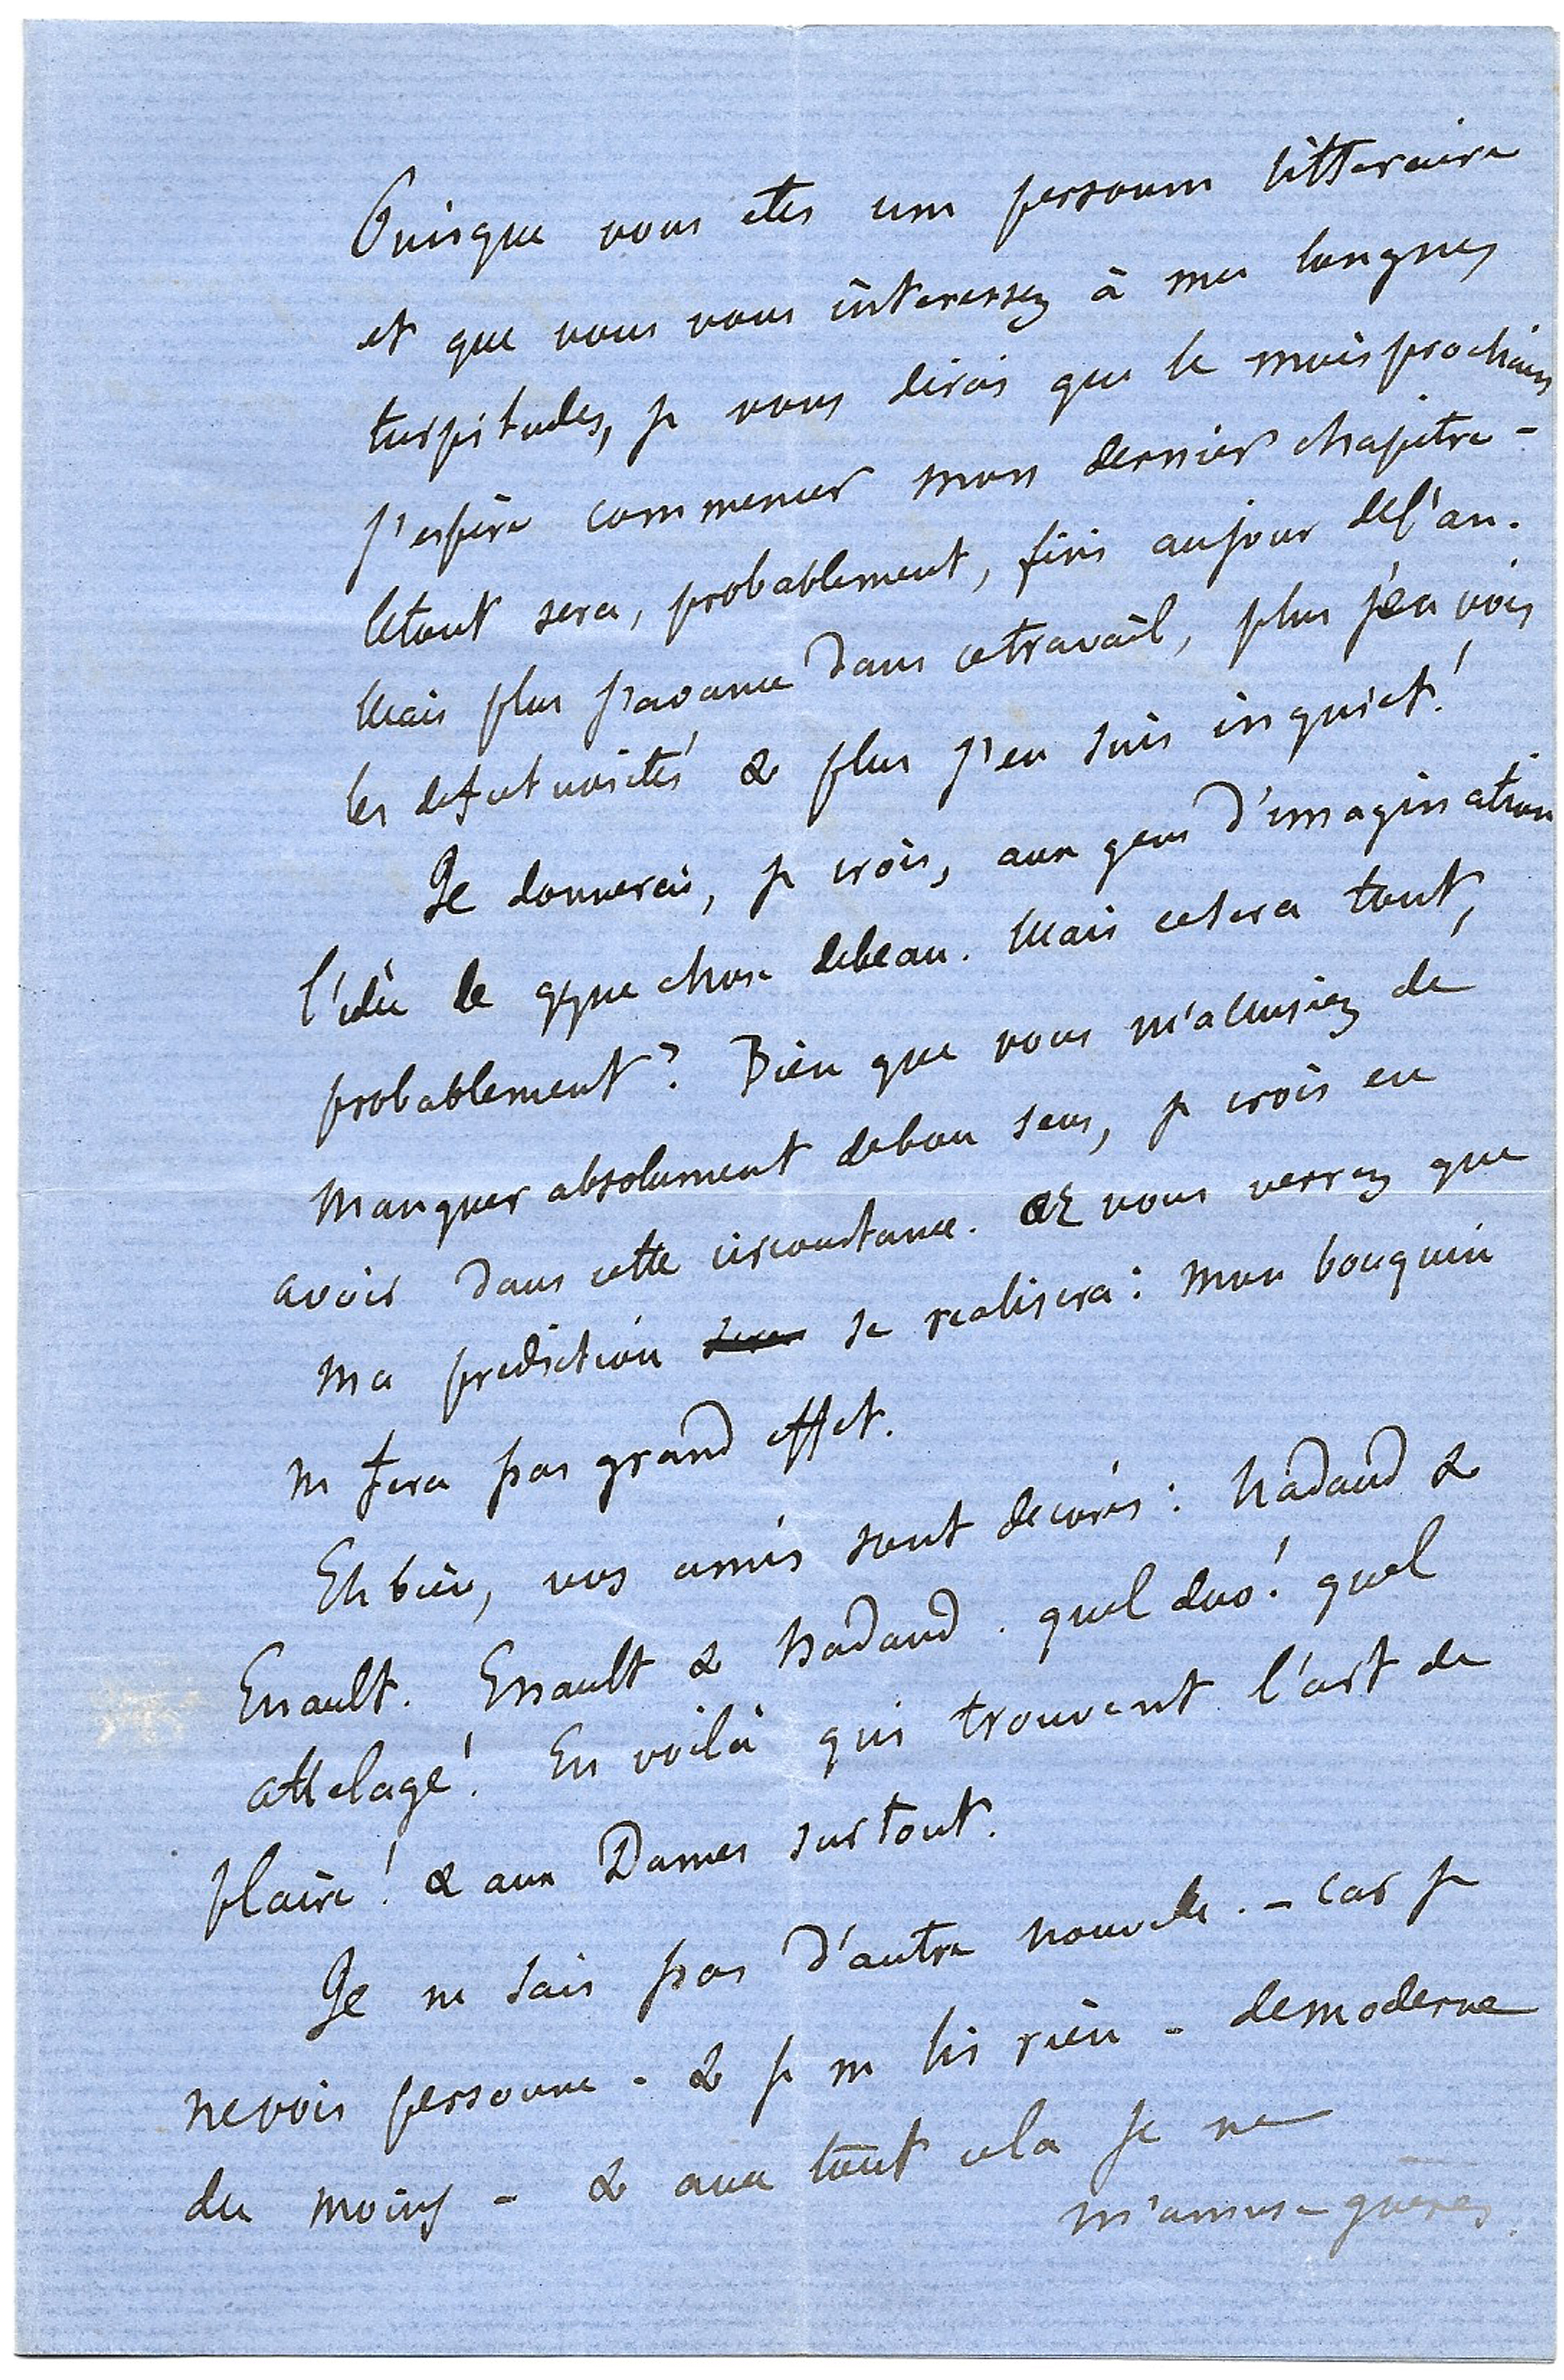 Puisque vous etes une personne litteraire
et que vous vous interessez à mes longues
turpitudes, je vous dirai que le mois prochain
j'espère commencer mon dernier chapitre -
le tout sera, probablement, fini au jour de l'an.
Mais plus j'avance dans ce travail, plus j'en vois
les defectuosités & plus j'en suis inquiet!
Je donnerai, je crois, aux gens d'imagination
l'idée de qque chose de beau. Mais ce sera tout,
probablement? Bien que vous m'accusiez de
manquer absolument de bon sens, je crois en
avoir dans cette circonstance. et vous verrez que
ma prediction se realisera: mon bouquin
ne fera pas grand effet.
Eh bien, vos amis sont decorés: Nadaud &
Enault. Enault & Nadaud. quel duo! quel
attelage! En voilà qui trouvent l'art de
plaire! & aux Dames surtout.
Je ne sais pas d'autre nouvelle. - car je
ne vois personne - & je ne lis rien - de moderne
du moins - & avec tout cela je ne
m'amuse guères.